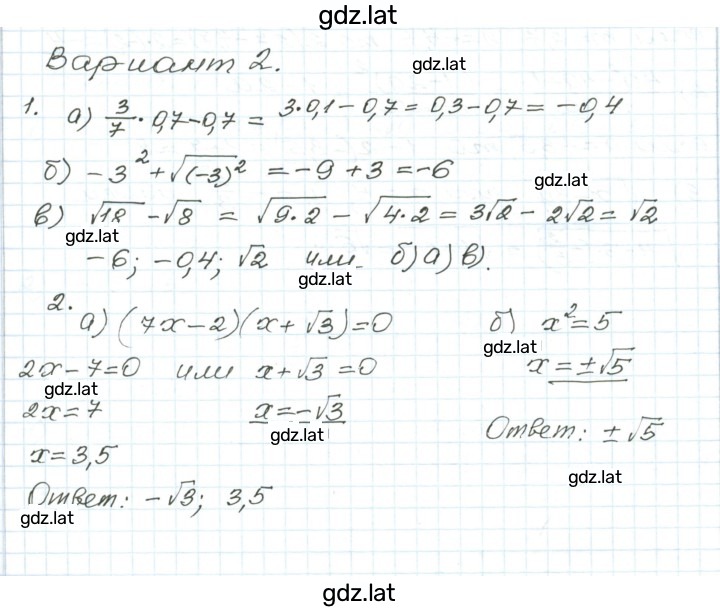 gdz.lat
Вариант 2.
gdz.lat
1. а) 3/7 · 0,7 - 0,7 = 3·0,1 - 0,7 = 0,3 - 0,7 = -0,4
б) -3² + √(-3)² = -9 + 3 = -6
gdz.lat
в) √18 - √8 = √9·2 - √4·2 = 3√2 - 2√2 = √2
gdz.lat
-6; -0,4; √2 или б) а) в).
gdz.lat
2. а) (7x-2)(x+√3)=0
б) x²=5
gdz.lat
2x-7=0 или x+√3=0
x=±√5
gdz.lat
2x=7
x=-√3
gdz.lat
Ответ: ±√5
x=3,5
gdz.lat
Ответ: -√3; 3,5
gdz.lat
gdz.lat